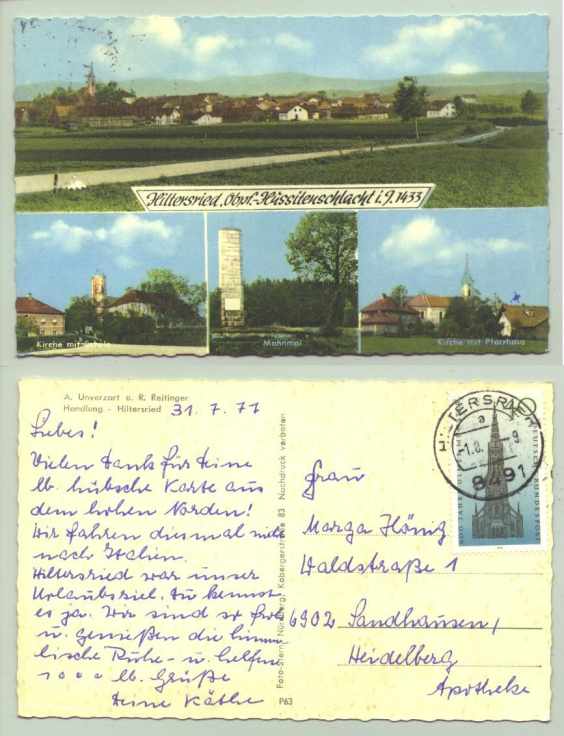 Hiltersried, Obpf.-Hussitenschlacht i. J. 1433
Kirche mit Schule
Mahnmal
Kirche mit Pfarrhaus
A. Unverzart u. R. Reitinger
Handlung - Hiltersried
31. 7. 77
Liebes!
Vielen Dank für Deine
lb. hübsche Karte aus
dem hohen Norden!
Wir fahren diesmal nicht
nach Italien.
Hiltersried war unser
Urlaubsziel. Du kennst
es ja. Wir sind so froh
u. genießen die himm
lische Ruhe - u. helfen
1000 lb. Grüße
Deine Käthe
Foto-Stern, Nürnberg, Kobergerstraße 83 Nachdruck verboten
P63
HILTERSRIED
a
-1.8.
9
8491
DEUTSCHE BUNDESPOST
Frau
Marga König
Waldstraße 1
6902 Sandhausen/
Heidelberg
Apotheke